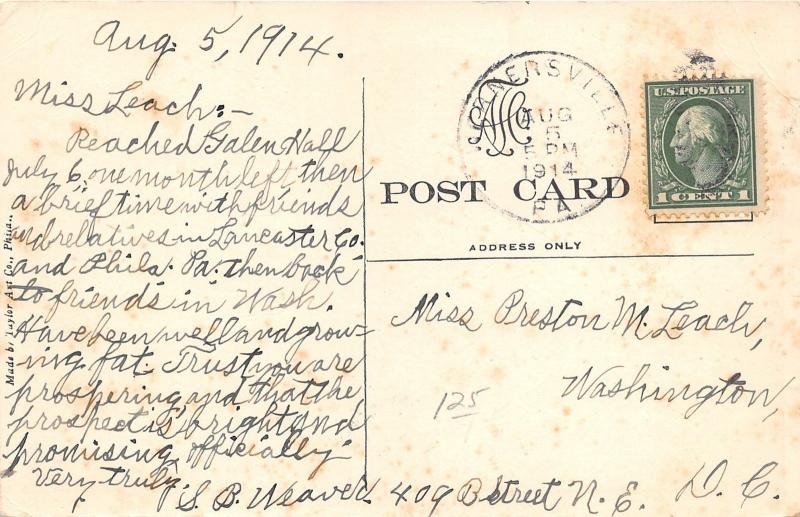 Aug. 5, 1914.
Miss Leach:-
Reached Galen Hall
July 6, one month left, then
a brief time with friends
and relatives in Lancaster Co.
and Phila. Pa. then back
to friends in Wash.
Have been well and grow-
ing fat. Trust you are
prospering and that the
prospect is bright and
promising officially.
Very truly,
S. B. Weaver.
Made by Taylor Art Co., Phila.
AUG
5
5 PM
1914
PA.
U.S. POSTAGE
1 CENT 1
POST CARD
ADDRESS ONLY
Miss Preston M. Leach,
Washington,
125
409 B Street N. E. D. C.